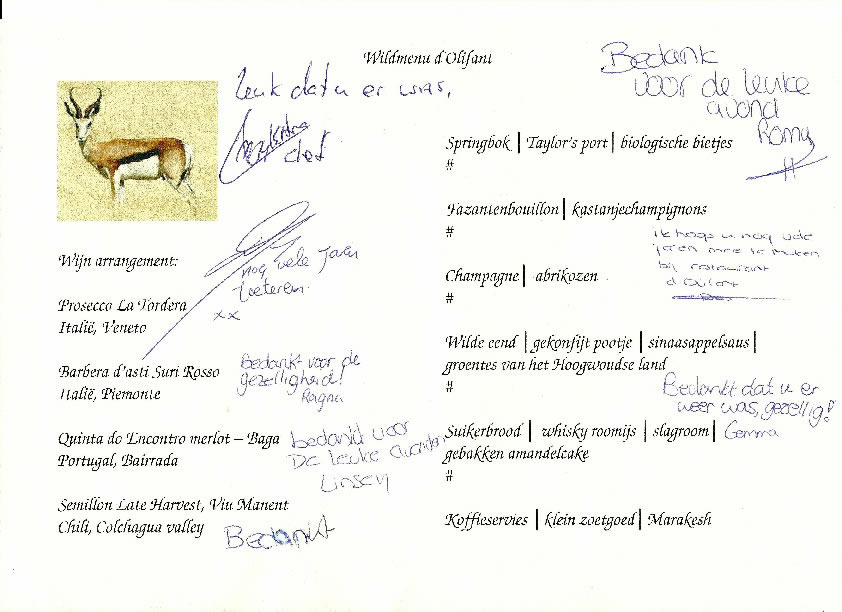 Wildmenu d'Olifant
Leuk dat u er was,
chef
Bedankt
voor de leuke
avond
Romy
Springbok | Taylor's port | biologische bietjes
#
Fazantenbouillon | kastanjechampignons
#
ik hoop u nog vele
jaren mee te maken
bij restaurant
d'Olifant
Champagne | abrikozen
#
Wilde eend | gekonfijt pootje | sinaasappelsaus |
groentes van het Hoogwoudse land
#
Bedankt dat u er
weer was, gezellig!
Gemma
Suikerbrood | whisky roomijs | slagroom |
gebakken amandelcake
#
Koffieservies | klein zoetgoed | Marakesh
Wijn arrangement:
nog vele jaren
toeteren
xx
Prosecco La Tordera
Italië, Veneto
Barbera d'asti Suri Rosso
Italië, Piemonte
Bedankt voor de
gezelligheid!
Quinta do Encontro merlot – Baga
Portugal, Bairrada
bedankt voor
De leuke avonden
Linsey
Semillon Late Harvest, Viu Manent
Chili, Colchagua valley
Bedankt